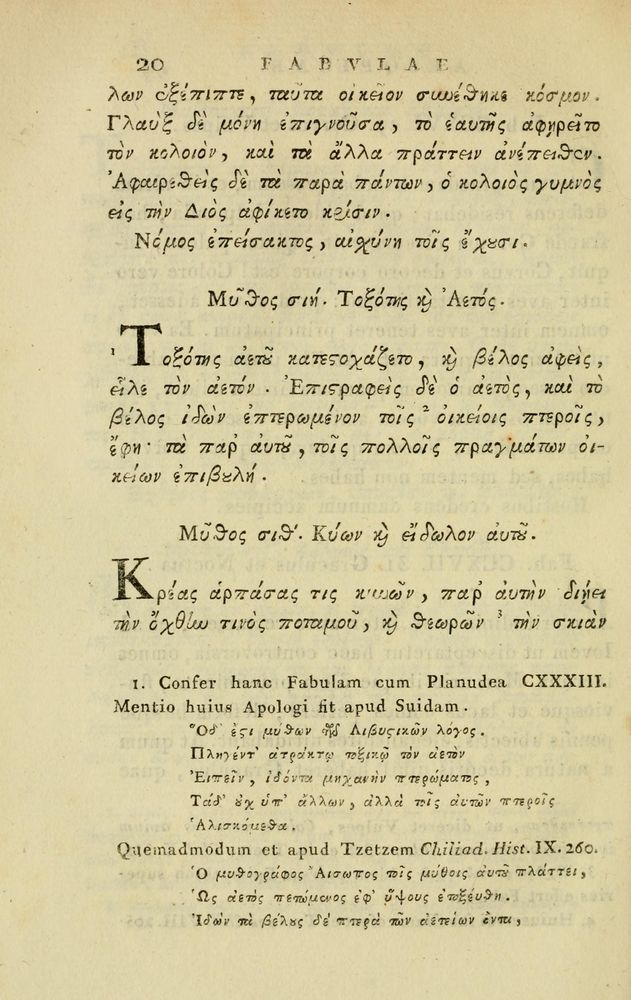 20 FABVLAE
λων ἐξέπιπτε, ταῦτα οἰκεῖον συνέθηκε κόσμον.
Γλαὺξ δὲ μόνη ἐπιγνοῦσα, τὸ ἑαυτῆς ἀφῃρεῖτο
τὸν κολοιὸν, καὶ τὰ ἄλλα πράττειν ἀνέπειθεν.
Ἀφαιρεθεὶς δὲ τὰ παρὰ πάντων, ὁ κολοιὸς γυμνὸς
εἰς τὴν Διὸς ἀφίκετο κρίσιν.
Νόμος ἐπείσακτος, αἰσχύνη τοῖς ἔχουσι.
Μῦθος σιή. Τοξότης καὶ Ἀετός.
¹ Τοξότης ἀετοῦ κατεστοχάζετο, καὶ βέλος ἀφεὶς,
εἷλε τὸν ἀετόν. Ἐπιστραφεὶς δὲ ὁ ἀετὸς, καὶ τὸ
βέλος ἰδὼν ἐπτερωμένον τοῖς ² οἰκείοις πτεροῖς,
ἔφη· τὰ παρ' αὐτοῦ, τοῖς πολλοῖς πραγμάτων οἰ-
κείων ἐπιβουλή.
Μῦθος σιθ'. Κύων καὶ εἴδωλον αὐτοῦ.
Κρέας ἁρπάσας τις κυνῶν, παρ' αὐτὴν διῄει
τὴν ὄχθην τινὸς ποταμοῦ, καὶ θεωρῶν ³ τὴν σκιὰν
1. Confer hanc Fabulam cum Planudea CXXXIII.
Mentio huius Apologi fit apud Suidam.
Ὅδ' ἐστι μύθων τῶν Λιβυστικῶν λόγος.
Πληγέντ' ἀτράκτῳ τοξικῷ τὸν ἀετὸν
Εἰπεῖν, ἰδόντα μηχανὴν πτερώματος,
Τάδ' οὐχ ὑπ' ἄλλων, ἀλλὰ τοῖς αὐτῶν πτεροῖς
Ἁλισκόμεθα.
Quemadmodum et apud Tzetzem Chiliad. Hist. IX. 260.
Ὁ μυθογράφος Αἴσωπος τοῖς μύθοις αὐτοῦ πλάττει,
Ὡς ἀετὸς πετώμενος ἐφ' ὕψους ἐτοξεύθη.
Ἰδὼν τὰ βέλους δὲ πτερὰ τῶν ἀετείων ὄντα,